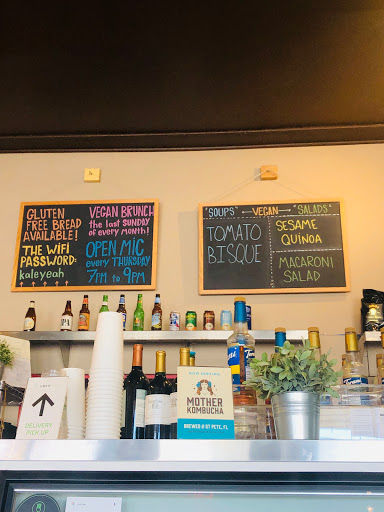 GLUTEN
FREE BREAD
AVAILABLE!
THE WIFI
PASSWORD:
kaleyeah
VEGAN BRUNCH
the last SUNDAY
of every month!
OPEN MIC
every THURSDAY
7PM to 9PM
"SOUPS" ← VEGAN → "SALADS"
TOMATO
BISQUE
SESAME
QUINOA
MACARONI
SALAD
DELIVERY
PICK UP
MOTHER
KOMBUCHA
BREWED IN ST PETE, FL